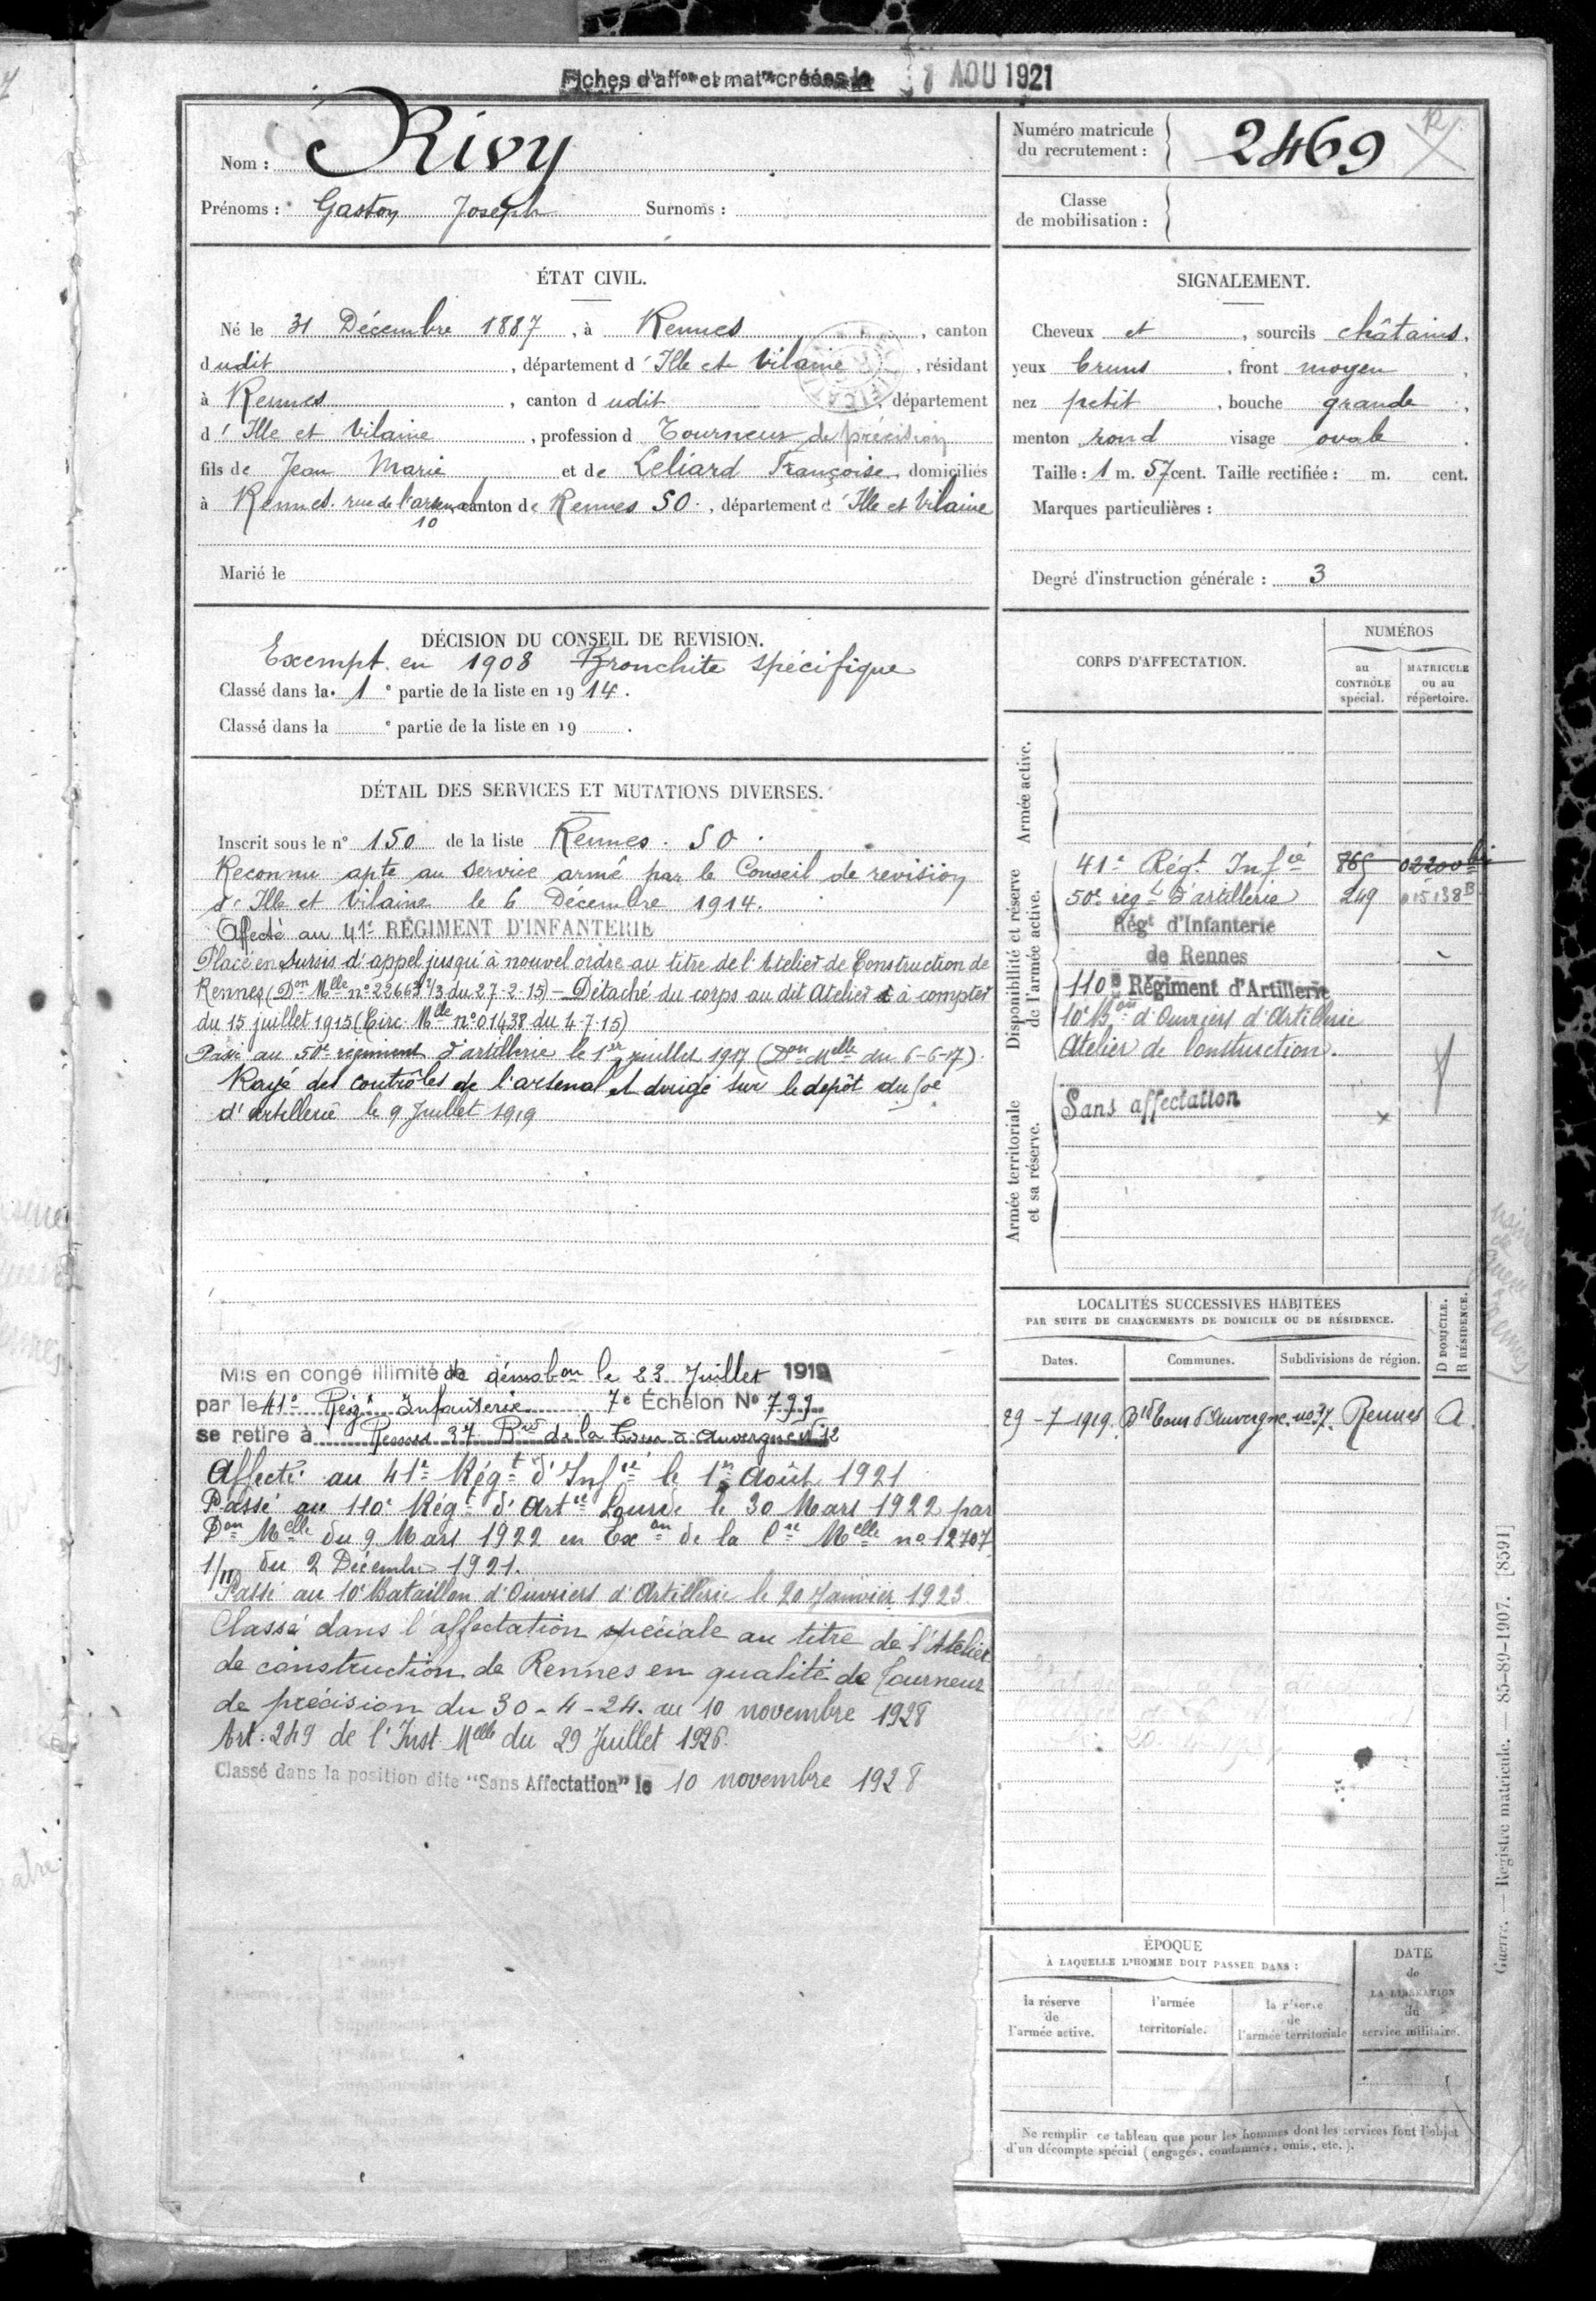 Fiches d'affon et matre créées le 7 AOU 1921
Nom : Rivy
Prénoms : Gaston Joseph Surnoms :
Numéro matricule du recrutement : 2469
Classe de mobilisation :
ÉTAT CIVIL.
Né le 31 Décembre 1887, à Rennes, canton
dudit, département d'Ille et Vilaine, résidant
à Rennes, canton dudit, département
d'Ille et Vilaine, profession d Tourneur de précision
fils de Jean Marie et de Leliard Françoise, domiciliés
à Rennes. rue de l'arsenal 10 canton de Rennes SO., département d'Ille et Vilaine
Marié le
SIGNALEMENT.
Cheveux et, sourcils châtains.
yeux bruns, front moyen,
nez petit, bouche grande,
menton rond visage ovale.
Taille : 1 m. 57 cent. Taille rectifiée : m. cent.
Marques particulières :
Degré d'instruction générale : 3
DÉCISION DU CONSEIL DE REVISION.
Exempt. en 1908 Bronchite spécifique
Classé dans la 1e partie de la liste en 1914.
Classé dans la e partie de la liste en 19 .
DÉTAIL DES SERVICES ET MUTATIONS DIVERSES.
Inscrit sous le n° 150 de la liste Rennes. SO.
Reconnu apte au service armé par le Conseil de revision
d'Ille et Vilaine le 6 Décembre 1914.
Affecté au 41e RÉGIMENT D'INFANTERIE
Placé en sursis d'appel jusqu'à nouvel ordre au titre de l'Atelier de Construction de
Rennes (Don Mlle n° 22663 1/3 du 27-2-15) — Détaché du corps au dit Atelier à compter
du 15 juillet 1915 (Circ. Mlle n° 01438 du 4-7-15)
Passé au 50e régiment d'artillerie le 1er juillet 1917 (Don Melle du 6-6-17).
Rayé des contrôles de l'arsenal et dirigé sur le dépôt du 50e
d'artillerie le 9 Juillet 1919
Mis en congé illimité de démobon le 23 Juillet 1919
par le 41e Régt Infanterie 7e Échelon N° 799
se retire à Rennes 37 Bd de la Tour d'Auvergne
Affecté au 41e Régt d'Infie le 1er Août 1921
Passé au 110e Régt d'Artie Lourde le 30 Mars 1922 par
Don Melle du 9 Mars 1922 en Exon de la Cre Melle no 12707
1/11 du 2 Décembre 1921.
Passé au 10e Bataillon d'Ouvriers d'Artillerie le 20 Janvier 1923.
Classé dans l'affectation spéciale au titre de l'Atelier
de construction de Rennes en qualité de Tourneur
de précision du 30-4-24. au 10 novembre 1928
Art. 249 de l'Inst. Melle du 29 Juillet 1926.
Classé dans la position dite "Sans Affectation" le 10 novembre 1928
CORPS D'AFFECTATION.
NUMÉROS
au CONTRÔLE spécial.
MATRICULE ou au répertoire.
Armée active.
Disponibilité et réserve de l'armée active.
41e Régt Infie 865 02200 bis
50e régt d'artillerie 249 015138B
Régt d'Infanterie
de Rennes
110e Régiment d'Artillerie
10e Bon d'Ouvriers d'Artillerie
Atelier de Construction.
Armée territoriale et sa réserve.
Sans affectation
LOCALITÉS SUCCESSIVES HABITÉES
PAR SUITE DE CHANGEMENTS DE DOMICILE OU DE RÉSIDENCE.
D DOMICILE. R RÉSIDENCE.
Dates. Communes. Subdivisions de région.
29-7-1919. Bd Tour d'Auvergne no 37. Rennes
ÉPOQUE
À LAQUELLE L'HOMME DOIT PASSER DANS :
la réserve de l'armée active.
l'armée territoriale.
la réserve de l'armée territoriale
DATE de LA LIBÉRATION du service militaire.
Ne remplir ce tableau que pour les hommes dont les services font l'objet
d'un décompte spécial (engagés, condamnés, omis, etc.).
Guerre. — Registre matricule. — 85-89-1907. [8591]